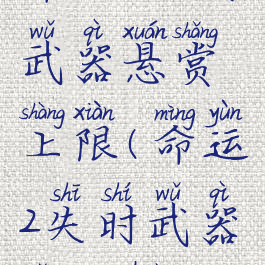 wǔ qì xuán shǎng
武器悬赏
shàng xiàn mìng yùn
上限(命运
shī shí wǔ qì
2失时武器